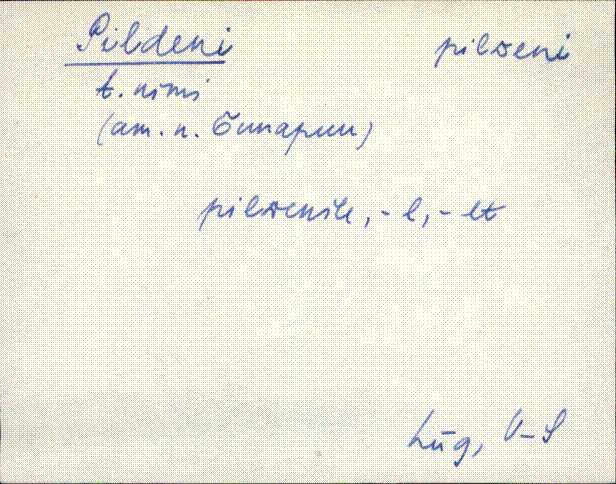 Pildeni pilᴅeni
t. nimi
(am. n. Билярии)
pilᴅenile, -l, -lt
Lüg, V-S